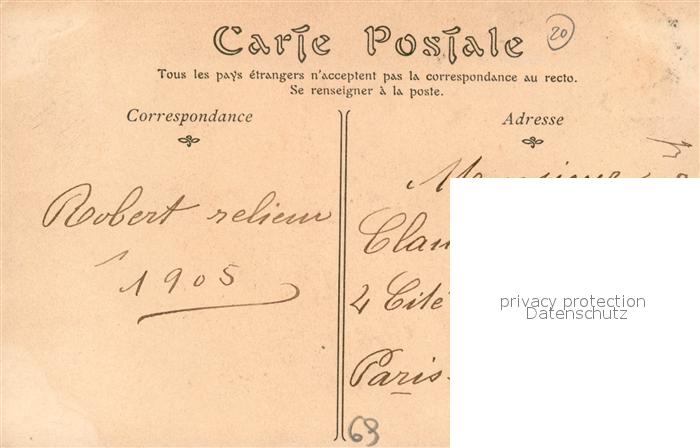 Carte Postale
20
Tous les pays étrangers n'acceptent pas la correspondance au recto.
Se renseigner à la poste.
Correspondance
Adresse
Robert relieur
1905
Monsieur
Clau
2 Cité
Paris
69
privacy protection
Datenschutz